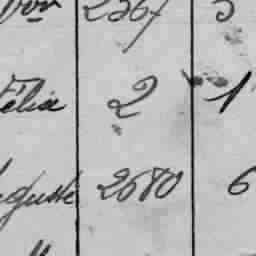 2367 3
Félix 2 1
Auguste 2680 6
"